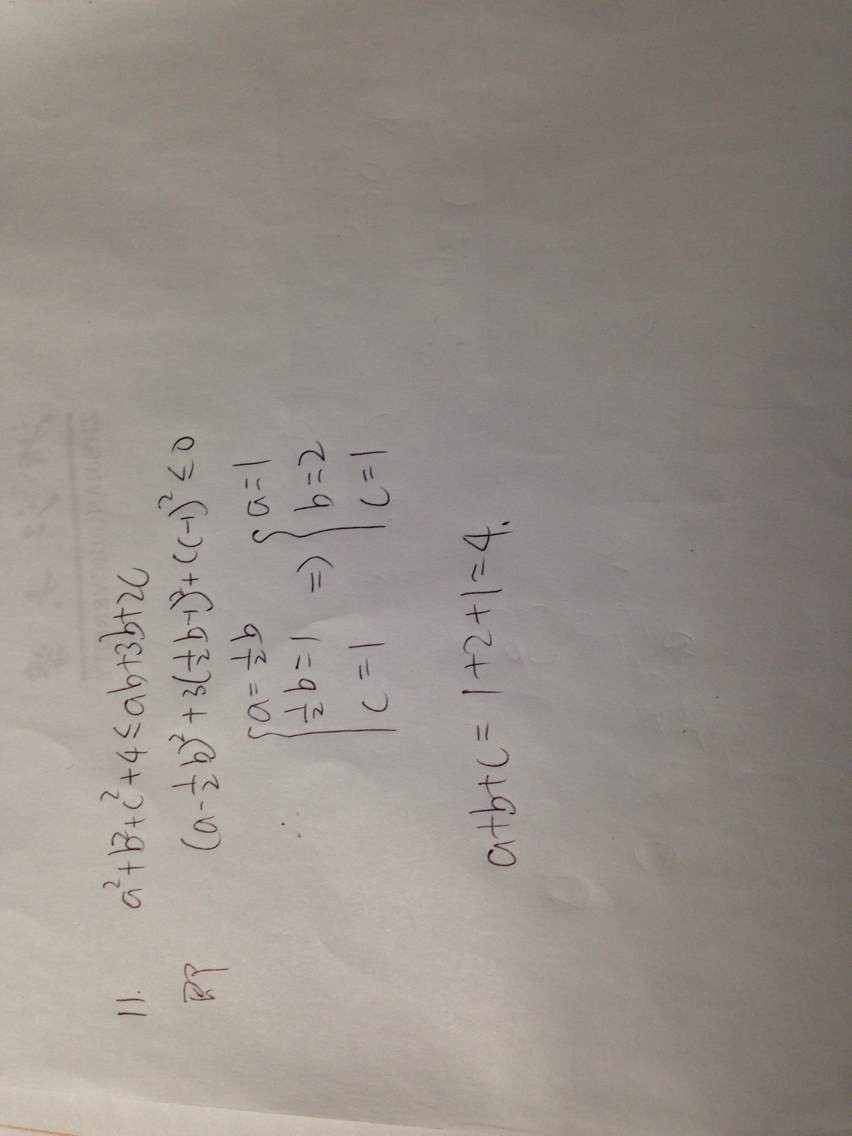 11. a²+b²+c²+4≤ab+3b+2c
即 (a-½b)²+3(½b-1)²+(c-1)²≤0
∴ {a=½b ½b=1 c=1 ⇒ {a=1 b=2 c=1
a+b+c=1+2+1=4.